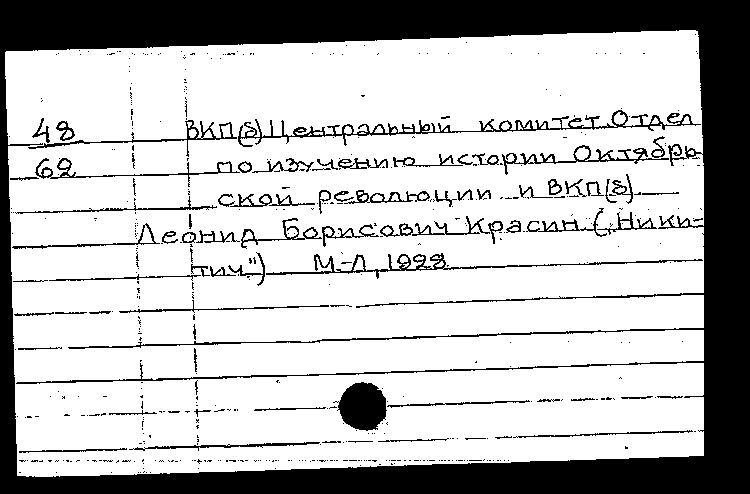 48
62
ВКП(б) Центральный комитет. Отдел
по изучению истории Октябрь-
ской революции и ВКП(б)
Леонид Борисович Красин („Ники-
тич") М.-Л., 1928